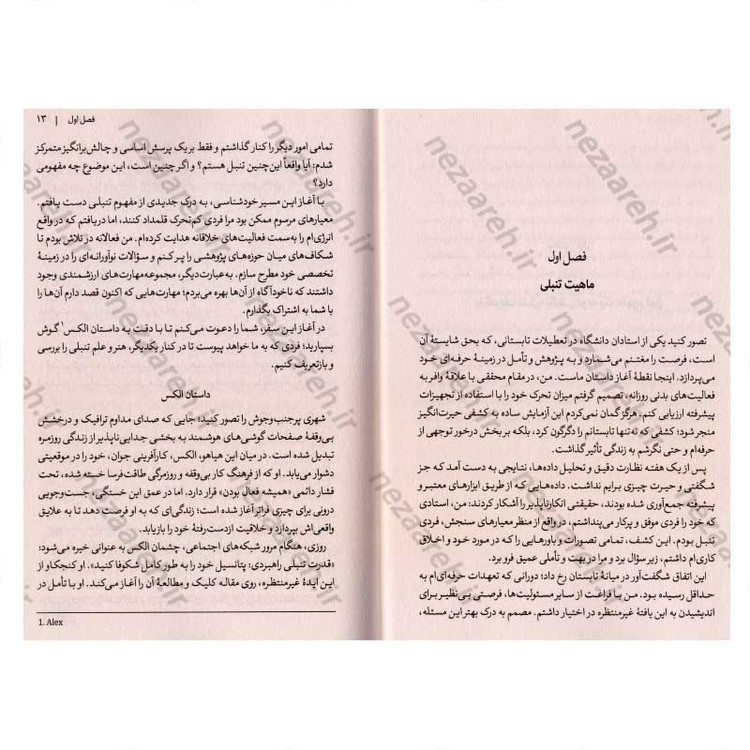 فصل اول
ماهیت تنبلی
تصور کنید یکی از استادان دانشگاه در تعطیلات تابستانی، که بحق شایستهٔ آن
است، فرصت را مغتنم می‌شمارد و به پژوهش و تأمل در زمینهٔ حرفه‌ای خود
می‌پردازد. اینجا نقطهٔ آغاز داستان ماست. من، در مقام محققی با علاقهٔ وافر به
فعالیت‌های بدنی روزانه، تصمیم گرفتم میزان تحرک خود را با استفاده از تجهیزات
پیشرفته ارزیابی کنم. هرگز گمان نمی‌کردم این آزمایش ساده به کشفی حیرت‌انگیز
منجر شود؛ کشفی که نه‌تنها تابستانم را دگرگون کرد، بلکه بر بخش درخور توجهی از
حرفه‌ام و حتی نگرشم به زندگی تأثیر گذاشت.
پس از یک هفته نظارت دقیق و تحلیل داده‌ها، نتایجی به دست آمد که جز
شگفتی و حیرت چیزی برایم نداشت. داده‌هایی که از طریق ابزارهای معتبر و
پیشرفته جمع‌آوری شده بودند، حقیقتی انکارناپذیر را آشکار کردند: من، استادی
که خود را فردی موفق و پرکار می‌پنداشتم، در واقع از منظر معیارهای سنجش، فردی
تنبل بودم. این کشف، تمامی تصورات و باورهایی را که در مورد خود و اخلاق
کاری‌ام داشتم، زیر سؤال برد و مرا در بهت و تأملی عمیق فرو برد.
این اتفاق شگفت‌آور در میانهٔ تابستان رخ داد؛ دورانی که تعهدات حرفه‌ای‌ام به
حداقل رسیده بود. من با فراغت از سایر مسئولیت‌ها، فرصتی بی‌نظیر برای
اندیشیدن به این یافتهٔ غیرمنتظره در اختیار داشتم. مصمم به درک بهتر این مسئله،
فصل اول | ۱۳
تمامی امور دیگر را کنار گذاشتم و فقط بر یک پرسش اساسی و چالش‌برانگیز متمرکز
شدم: آیا واقعاً این‌چنین تنبل هستم؟ و اگر چنین است، این موضوع چه مفهومی
دارد؟
با آغاز این مسیر خودشناسی، به درک جدیدی از مفهوم تنبلی دست یافتم.
معیارهای مرسوم ممکن بود مرا فردی کم‌تحرک قلمداد کنند، اما دریافتم که در واقع
انرژی‌ام را به‌سمت فعالیت‌های خلاقانه هدایت کرده‌ام. من فعالانه در تلاش بودم تا
شکاف‌های میان حوزه‌های پژوهشی را پر کنم و سؤالات نوآورانه‌ای را در زمینهٔ
تخصصی خود مطرح سازم. به‌عبارت‌دیگر، مجموعه‌مهارت‌های ارزشمندی وجود
داشتند که ناخودآگاه از آن‌ها بهره می‌بردم؛ مهارت‌هایی که اکنون قصد دارم آن‌ها را
با شما به اشتراک بگذارم.
در آغاز این سفر، شما را دعوت می‌کنم تا با دقت به داستان الکس۱ گوش
بسپارید؛ فردی که به ما خواهد پیوست تا در کنار یکدیگر، هنر و علم تنبلی را بررسی
و بازتعریف کنیم.
داستان الکس
شهری پرجنب‌وجوش را تصور کنید؛ جایی که صدای مداوم ترافیک و درخشش
بی‌وقفهٔ صفحات گوشی‌های هوشمند به بخشی جدایی‌ناپذیر از زندگی روزمره
تبدیل شده است. در میان این هیاهو، الکس، کارآفرینی جوان، خود را در موقعیتی
دشوار می‌یابد. او که از فرهنگ کار بی‌وقفه و روزمرگی طاقت‌فرسا خسته شده، تحت
فشار دائمی «همیشه فعال بودن» قرار دارد. اما در عمق این خستگی، جست‌وجویی
درونی برای چیزی فراتر آغاز شده است؛ زندگی‌ای که به او فرصت دهد تا به علایق
واقعی‌اش بپردازد و خلاقیت ازدست‌رفتهٔ خود را بازیابد.
روزی، هنگام مرور شبکه‌های اجتماعی، چشمان الکس به عنوانی خیره می‌شود:
«قدرت تنبلی راهبردی: پتانسیل خود را به طور کامل شکوفا کنید». او کنجکاو از
این ایدهٔ غیرمنتظره، روی مقاله کلیک و مطالعهٔ آن را آغاز می‌کند. او با تأمل در
1. Alex
nezaareh.ir